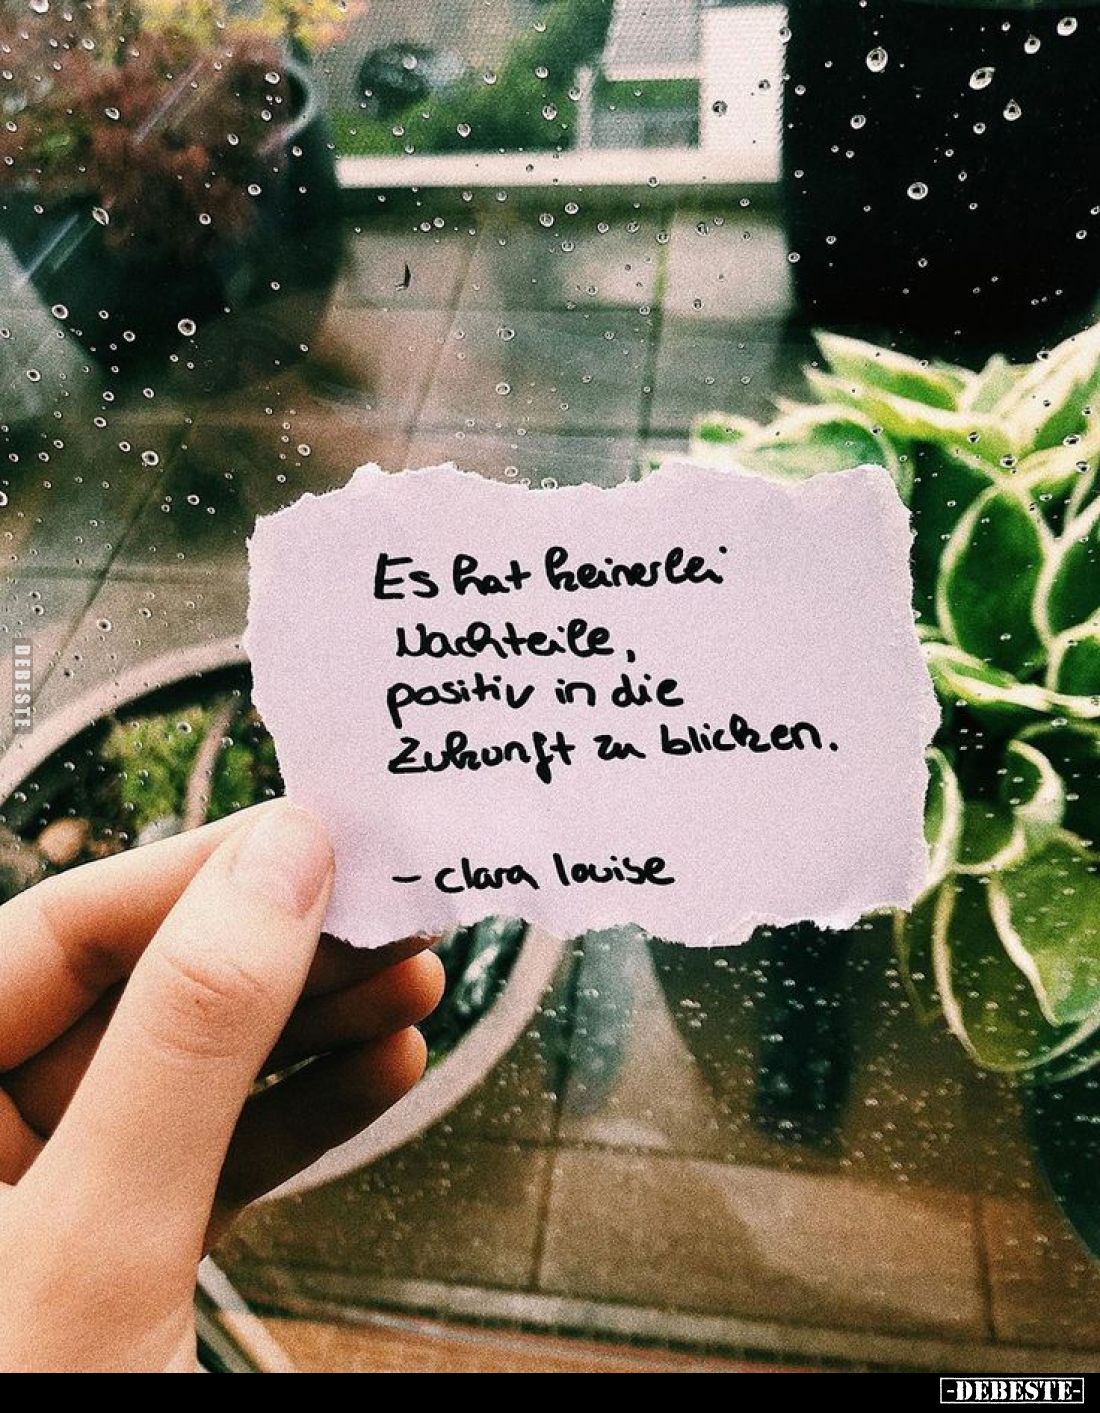 Es hat keinerlei
Nachteile,
positiv in die
Zukunft zu blicken.
- clara louise
DEBESTE
-DEBESTE-